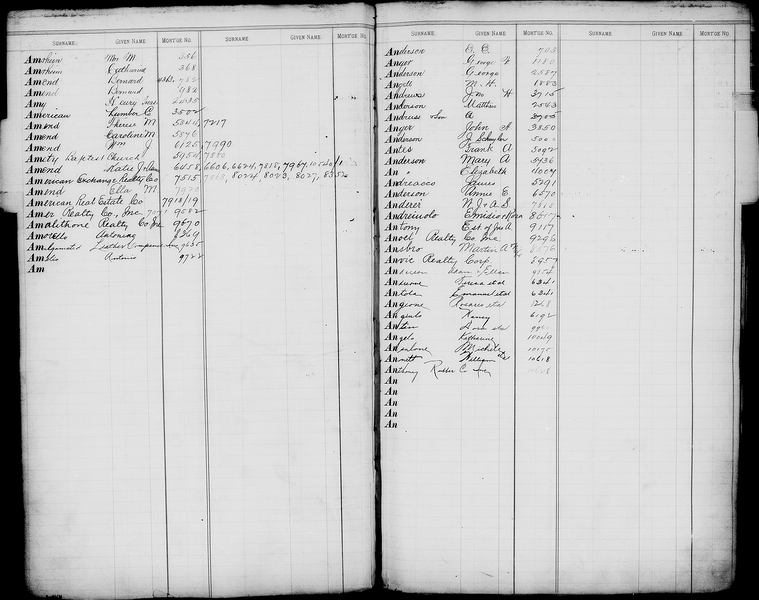 SURNAME. GIVEN NAME MORTG'GE NO. SURNAME. GIVEN NAME MORTG'GE NO.
Amshein Mrs M. 336
Amshein Catherine 368
Amend Bernard 782
Amend Bernard 982
Amy H'enry 2535
American Lumber C 3502
Amend Therese M 5844, 7217
Amend Caroline M 5876
Amend Wm J 6125, 7990
Amity Baptist Church 5954
Amend Katie J 6058, 6606, 6624, 7818, 7967
American Exchange Realty Co 7515 8024, 8023, 8027, 8352
Amend Ella M.
American Real Estate Co 7918/19
Amer Realty Co, Inc. 9582
Amalithone Realty Co Inc 9670
Amorello Antonino 9369
Amalgamated Leather Companies Inc 9655
Am Antonio 9722
Am
SURNAME. GIVEN NAME MORTG'GE NO. SURNAME. GIVEN NAME MORTG'GE NO.
Anderson C. C. 703
Anger George F 1180
Anderson George 2587
Angell M. H. 1883
Andrews Jno H 3715
Anderson Matthew 2563
Andreus & Son A 3705
Anger John A. 3850
Anderson J. Schuyler 5000
Antes Frank A 5092
Anderson Mary A 5436
An " Elizabeth 1004
Andreacco James 5291
Anderson Annie E. 6570
Anderei N. J & A. S. 7518
Andreinolo Emidio & Nora 8617
Antony Est of Jas A 9117
Anoel Realty Co Inc 9296
Ansbro Martin A 8576
Anvic Realty Corp. 8957
An Adam & Ellen 9154
An Teresa et al 6341
Antola Emanuel et al 6341
Angione Rosario et al 1268
Angeulo Nancy 6192
An
Angelo Katherine 10049
An Michele 10175
Annett William 10618
Anthony Rubber Co Inc 10628
An
An
An
An
An